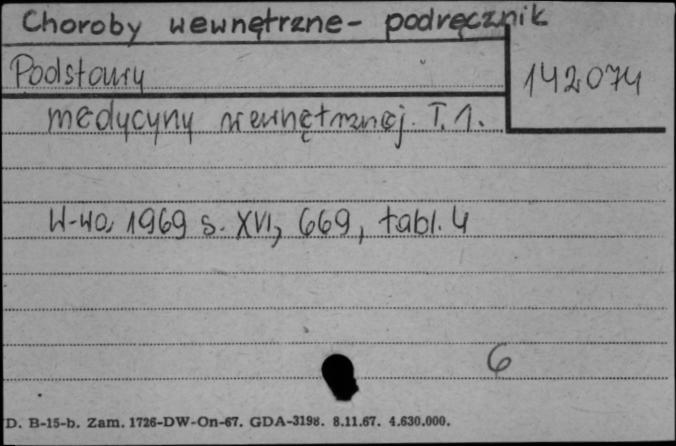 Choroby wewnętrzne - podręcznik
Podstawy
142074
medycyny wewnętrznej. T. 1.
W-wa 1969 s. XVI, 669, tabl. 4
6
D. B-15-b. Zam. 1726-DW-On-67. GDA-3198. 8.11.67. 4.630.000.